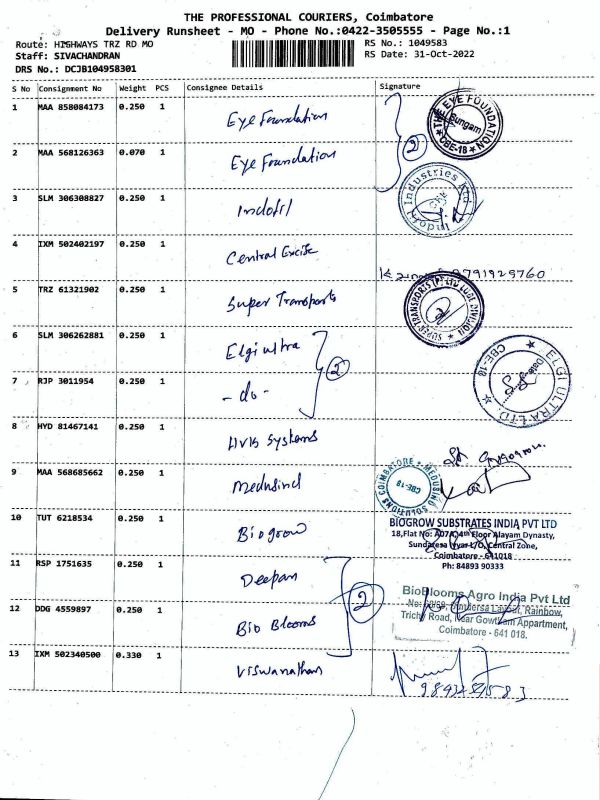 THE PROFESSIONAL COURIERS, Coimbatore
Delivery Runsheet - MO - Phone No.:0422-3505555 - Page No.:1
Route: HIGHWAYS TRZ RD MO RS No.: 1049583
Staff: SIVACHANDRAN RS Date: 31-Oct-2022
DRS No.: DCJB104958301
S No Consignment No Weight PCS Consignee Details Signature
1 MAA 858084173 0.250 1 Eye Foundation
THE EYE FOUNDATION
Sungam
CBE-18
2 MAA 568126363 0.070 1 Eye Foundation 2
3 SLM 306308827 0.250 1 Indofil
Industries Ltd
4 IXM 502402197 0.250 1 Central Excise
9791929760
5 TRZ 61321902 0.250 1 Super Transports
SUPER TRANSPORTS (P) LTD LUGE DIVISION
6 SLM 306262881 0.250 1 Elgi ultra
7 RJP 3011954 0.250 1 - do - 2
ELGI ULTRA LTD.
CBE-18
8 HYD 81467141 0.250 1 HVR Systems
9 MAA 568685662 0.250 1 Medusind
MEDUSIND SOLUTIONS COIMBATORE
CBE-18
10 TUT 6218534 0.250 1 Biogrow
BIOGROW SUBSTRATES INDIA PVT LTD
18,Flat No: A07A,4th Floor Alayam Dynasty,
Sundaresa Iyer L/O, Central Zone,
Coimbatore - 641018
Ph: 84893 90333
11 RSP 1751635 0.250 1 Deepam
12 DDG 4559897 0.250 1 Bio Blooms 2
BioBlooms Agro India Pvt Ltd
No: Rainbow,
Trichy Road, Near Gowtham Appartment,
Coimbatore - 641 018.
13 IXM 502340500 0.330 1 Viswanathan